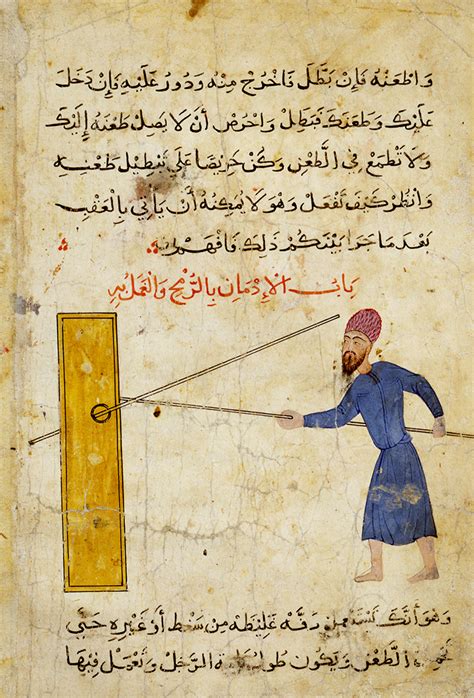 واطعنه فإن بطل فاخرج منه ودور عليه فإن دخل
عليك وطعنك فبطل واحرص أن لا يصل طعنه إليك
ولا تطمع في الطعن وكن حريصا على تبطيل طعنه
وانظر كيف تفعل وهو لا يمكنه أن يأتي بالعقب
بعد ما جرا بينكم ذلك فافهم
باب الإدمان بالرمح والعمل به
وهو أنك تستعمل دفه غليظه من سنط أو غيره حتى
الطعن ويكون طولها قامة الرجل وتعمل فيها